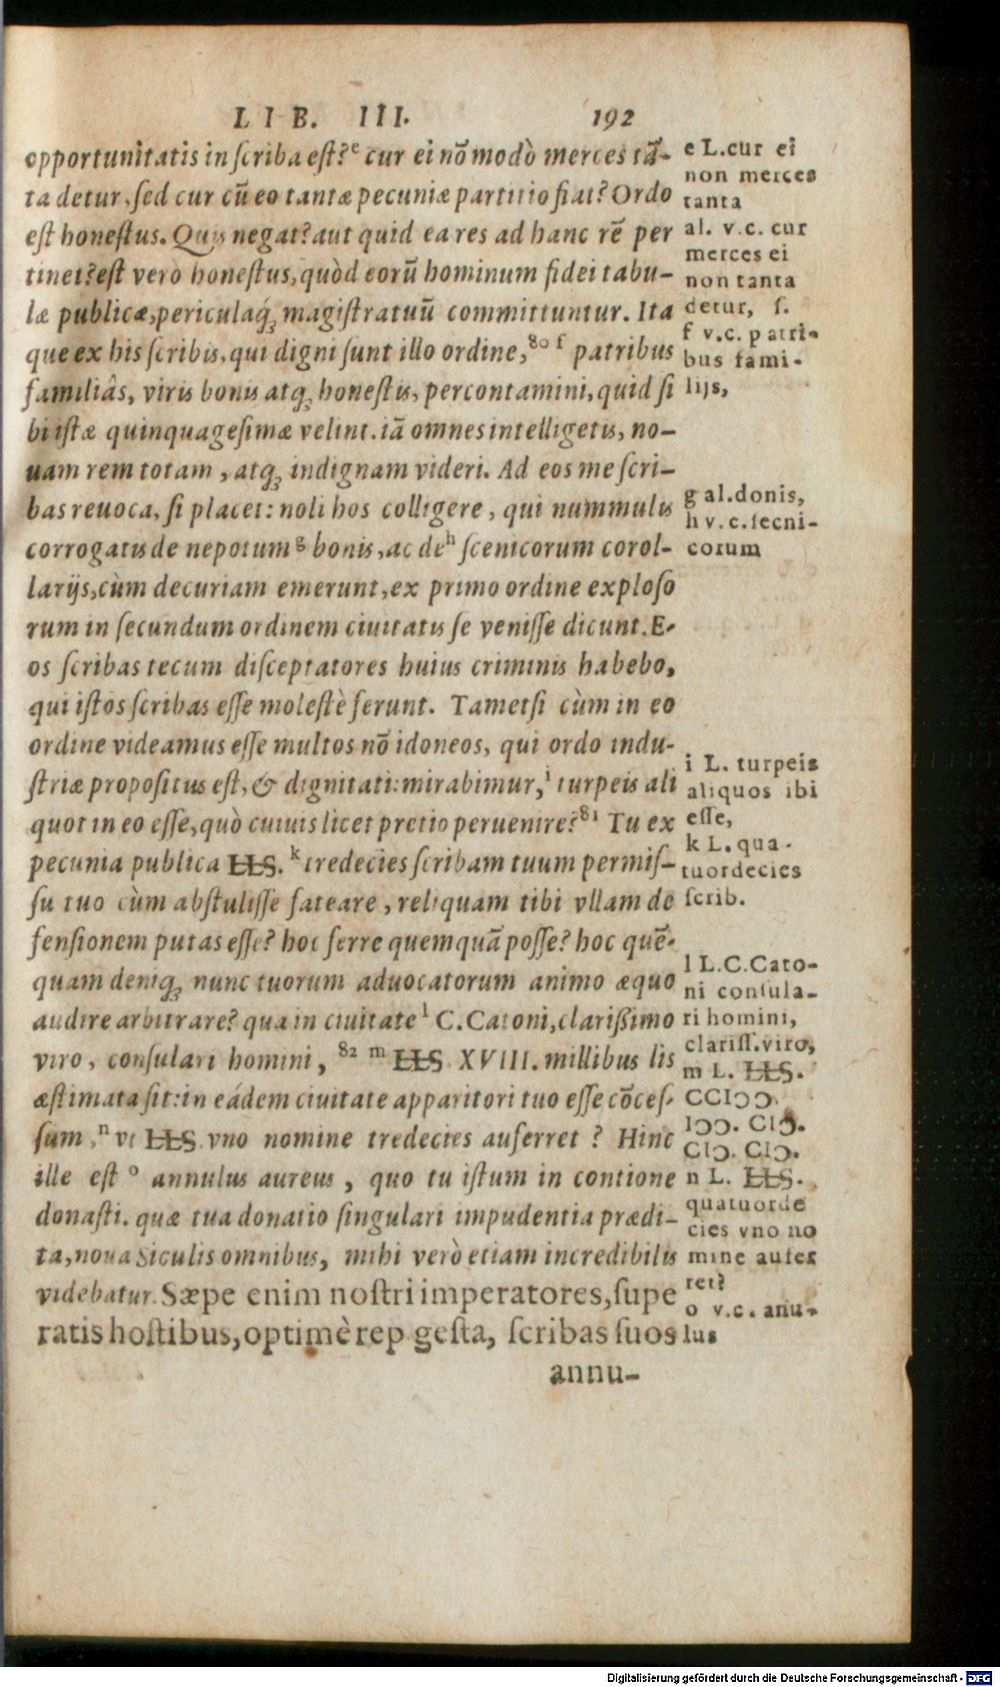 LIB. III. 192
opportunitatis in scriba est? e cur ei nõ modò merces tã-
ta detur, sed cur cũ eo tantæ pecuniæ partitio fiat? Ordo
est honestus. Quis negat? aut quid ea res ad hanc rẽ per
tinet? est verò honestus, quòd eorũ hominum fidei tabu-
læ publicæ, periculaq́; magistratuũ committuntur. Ita
que ex his scribis, qui digni sunt illo ordine, 80 f patribus
familiâs, viris bonis atq; honestis, percontamini, quid si
bi istæ quinquagesimæ velint. iã omnes intelligetis, no-
uam rem totam, atq; indignam videri. Ad eos me scri-
bas reuoca, si placet: noli hos colligere, qui nummulis
corrogatis de nepotum g bonis, ac de h scenicorum corol-
larijs, cùm decuriam emerunt, ex primo ordine exploso
rum in secundum ordinem ciuitatis se venisse dicunt. E-
os scribas tecum disceptatores huius criminis habebo,
qui istos scribas esse molestè ferunt. Tametsi cùm in eo
ordine videamus esse multos nõ idoneos, qui ordo indu-
striæ propositus est, & dignitati: mirabimur, i turpeis ali
quot in eo esse, quò cuiuis licet pretio peruenire? 81 Tu ex
pecunia publica LLS. k tredecies scribam tuum permis-
su tuo cùm abstulisse fateare, reliquam tibi vllam de
fensionem putas esse? hoc ferre quemquã posse? hoc quẽ-
quam deniq; nunc tuorum aduocatorum animo æquo
audire arbitrare? qua in ciuitate l C. Catoni, clarißimo
viro, consulari homini, 82 m LLS XVIII. millibus lis
æstimata sit: in eádem ciuitate apparitori tuo esse cõces-
sum, n vt LLS. vno nomine tredecies auferret? Hinc
ille est o annulus aureus, quo tu istum in contione
donasti. quæ tua donatio singulari impudentia prædi-
ta, noua Siculis omnibus, mihi verò etiam incredibilis
videbatur. Sæpe enim nostri imperatores, supe
ratis hostibus, optimè rep gesta, scribas suos
annu-
e L. cur ei
non merces
tanta
al. v.c. cur
merces ei
non tanta
detur, s.
f v.c. patri-
bus fami-
lijs,
g al. donis,
h v.c. secni-
corum
i L. turpeis
aliquos ibi
esse,
k L. qua-
tuordecies
scrib.
l L. C. Cato-
ni consula-
ri homini,
clariss. viro,
m L. LLS.
CCIↃↃ.
IↃↃ. CIↃ.
CIↃ. CIↃ.
n L. LLS.
quatuorde
cies vno no
mine aufer
ret?
o v.c. anu-
lus
Digitalisierung gefördert durch die Deutsche Forschungsgemeinschaft - DFG